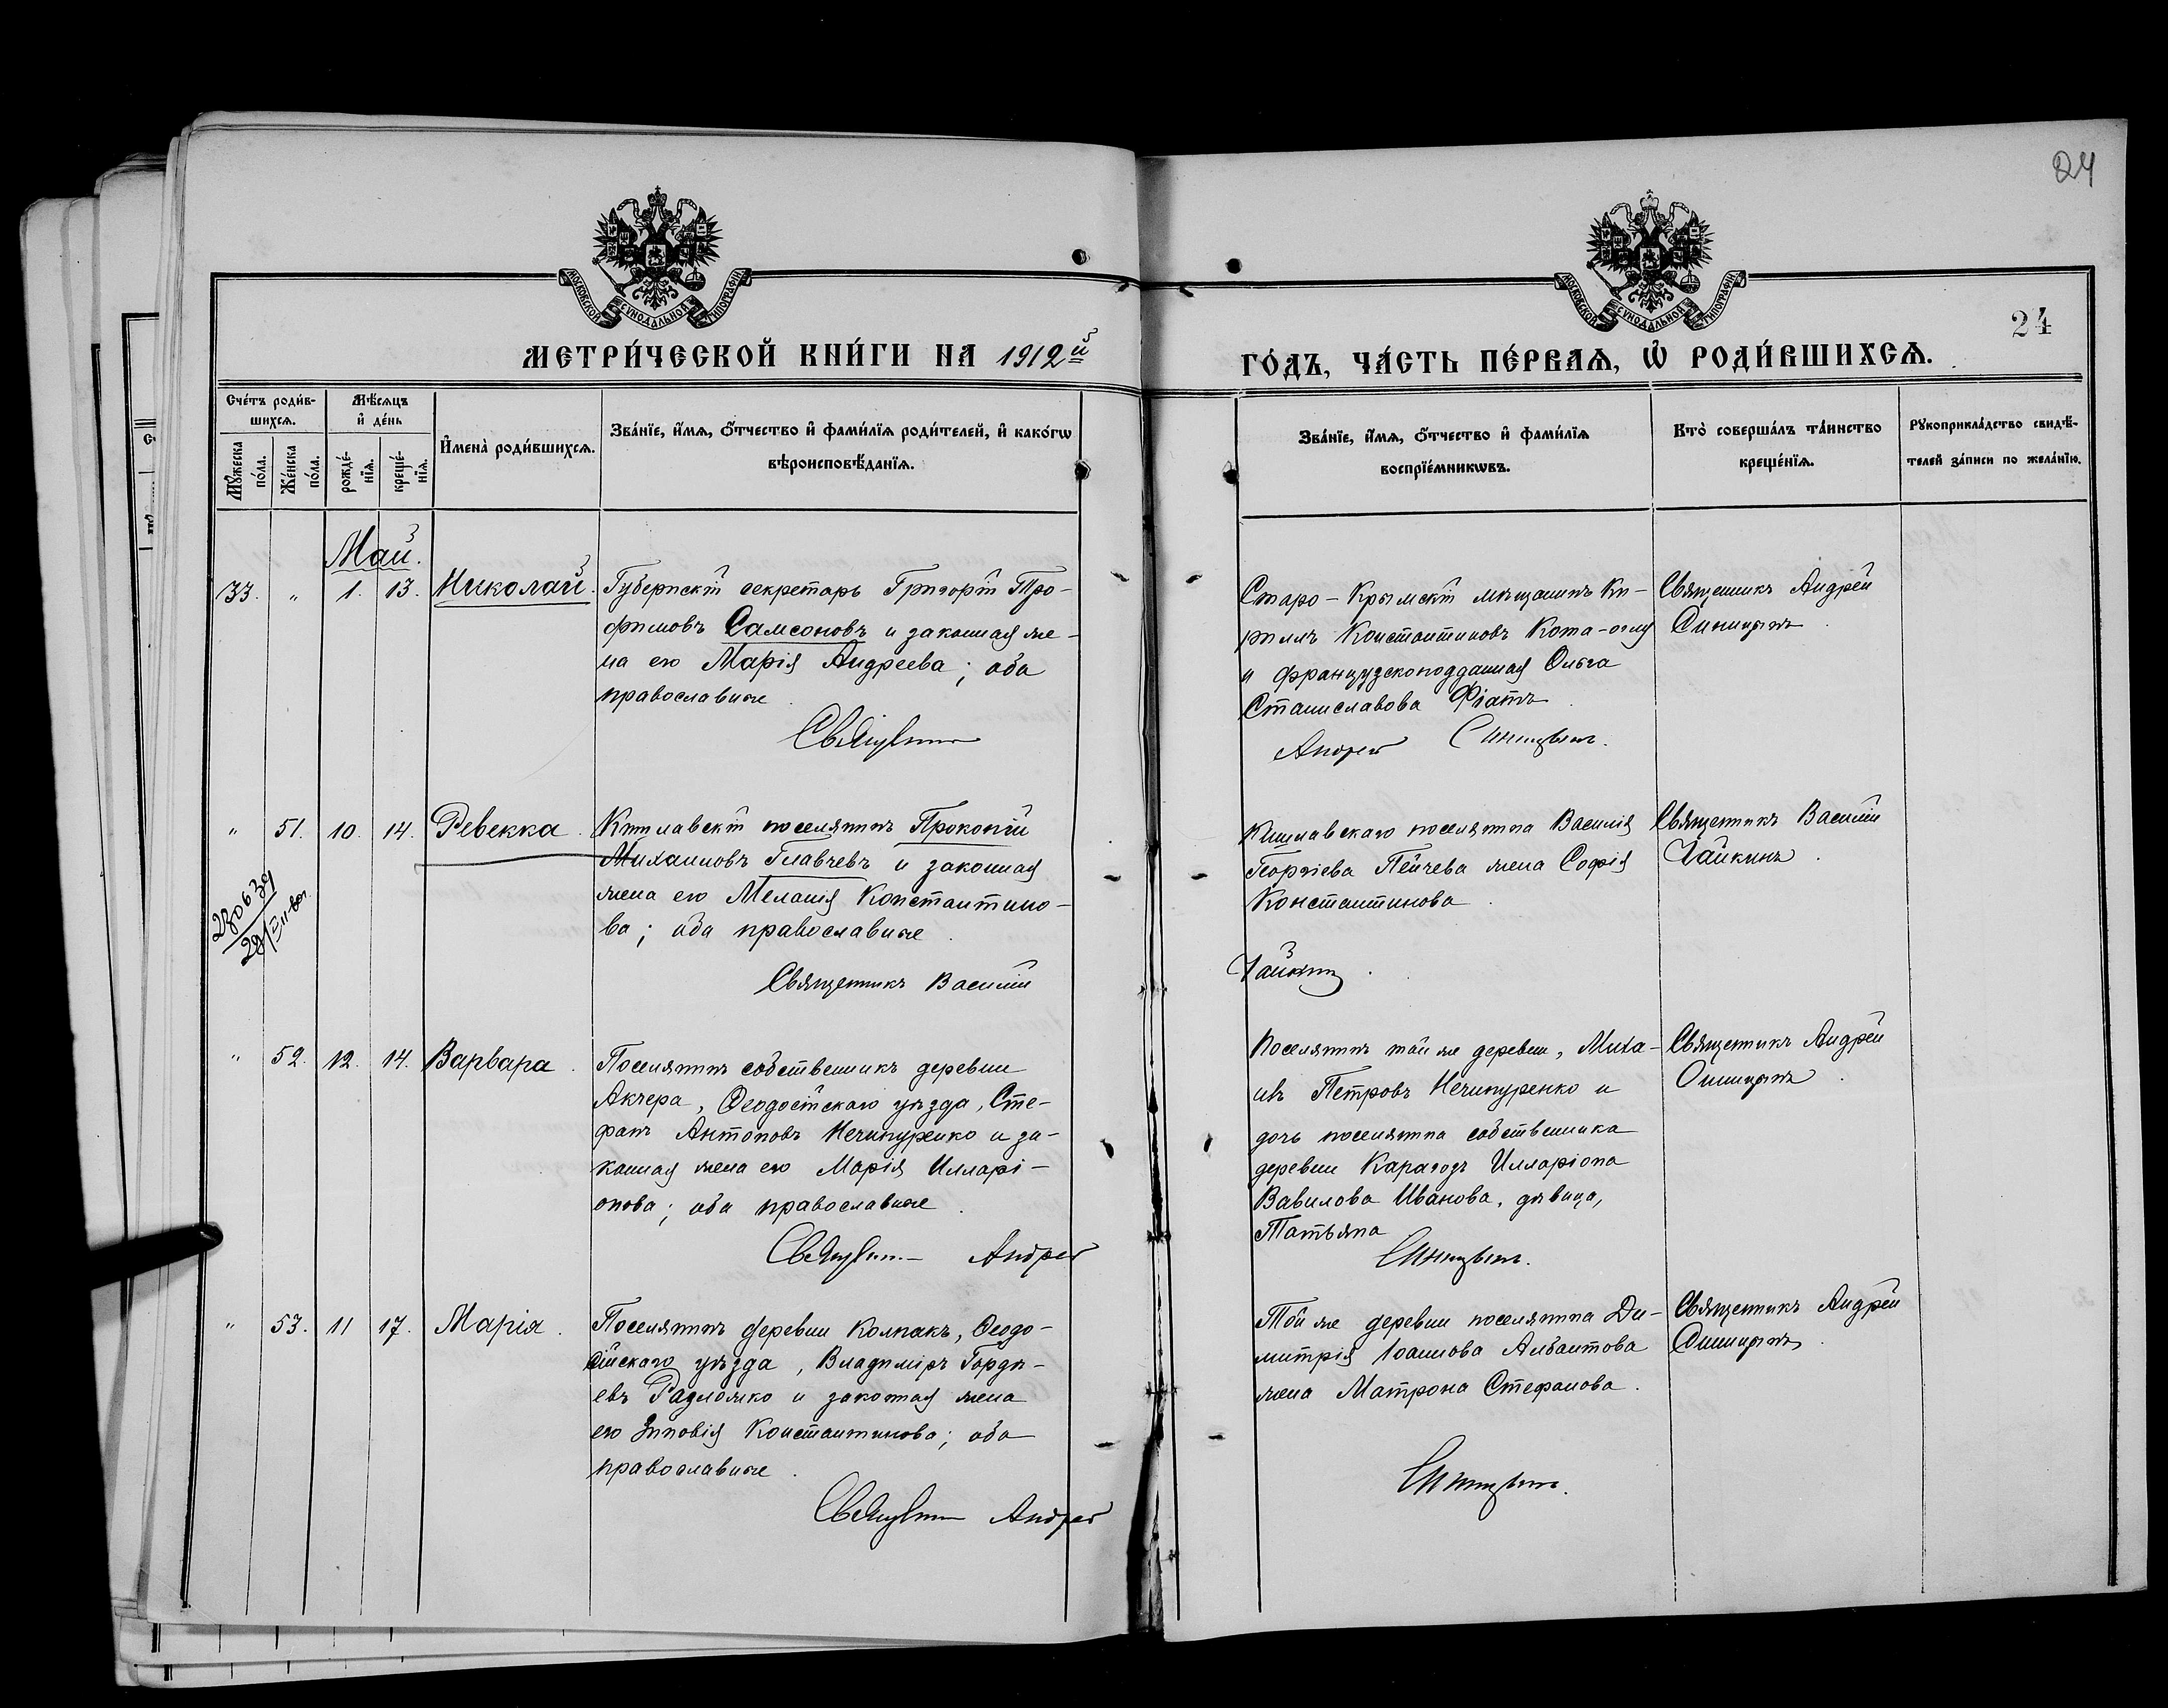 24
МОСКОВСКОЙ СУНОДАЛЬНОЙ ТИПОГРАФІИ
МОСКОВСКОЙ СУНОДАЛЬНОЙ ТИПОГРАФІИ
24
МЕТРИ́ЧЕСКОЙ КНИ́ГИ НА 1912й
ГО́ДЪ, ЧА́СТЬ ПЕ́РВАѦ, Ѡ҆ РОДИ́ВШИХСѦ.
Сче́тъ роди́в-
шихсѧ.
Мꙋ́жеска по́ла.
Же́нска по́ла.
Мѣ́сѧцъ
и҆ де́нь
рожде́-нїѧ.
креще́-нїѧ.
И҆мена̀ роди́вшихсѧ.
Зва́нїе, и҆́мѧ, ѻ҆́тчество и҆ фами́лїѧ роди́телей, и҆ како́гѡ
вѣроисповѣ́данїѧ.
Зва́нїе, и҆́мѧ, ѻ҆́тчество и҆ фами́лїѧ
воспрїе́мникѡвъ.
Кто̀ соверша́лъ та́инство
креще́нїѧ.
Рꙋкоприкла́дство свидѣ́-
телей за́писи по жела́нїю.
Май.
33. " 1. 13. Николай.
Губернскій секретарь Григорій Тро-
фимовъ Самсоновъ и законная же-
на его Марія Андреева; оба
православные
Священникъ
Старо-Крымскій мѣщанинъ Ки-
риллъ Константиновъ Кота-оглу
и французскоподданная Ольга
Станиславова Фіатъ
Андрей Синицынъ.
Священникъ Андрей
Синицынъ
" 51. 10. 14. Ревекка.
Кишлавскій поселянинъ Прокопій
Михаиловъ Главчевъ и законная
жена его Меланія Константино-
ва; оба православные.
Священникъ Василій
Кишлавскаго поселянина Василія
Георгіева Пейчева жена Софія
Константинова.
Чайкинъ.
Священникъ Василій
Чайкинъ.
" 52. 12. 14. Варвара.
Поселянинъ собственникъ деревни
Акчера, Ѳеодосійскаго уѣзда, Сте-
фанъ Антоновъ Нечипуренко и за-
конная жена его Марія Илларі-
онова; оба православные.
Священникъ Андрей
поселянинъ той же деревни, Миха-
илъ Петровъ Нечипуренко и
дочь поселянина собственника
деревни Карагозъ Илларіона
Вавилова Иванова, дѣвица,
Татьяна
Синицынъ.
Священникъ Андрей
Синицынъ.
" 53. 11 17. Марія.
Поселянинъ деревни Колпакъ, Ѳеодо-
сійскаго уѣзда, Владиміръ Горди-
евъ Разложко и законная жена
его Зиновія Константинова; оба
православные.
Священникъ Андрей
Той же деревни поселянина Ди-
митрія Іоаннова Албантова
жена Матрона Стефанова.
Синицынъ.
Священникъ Андрей
Синицынъ.